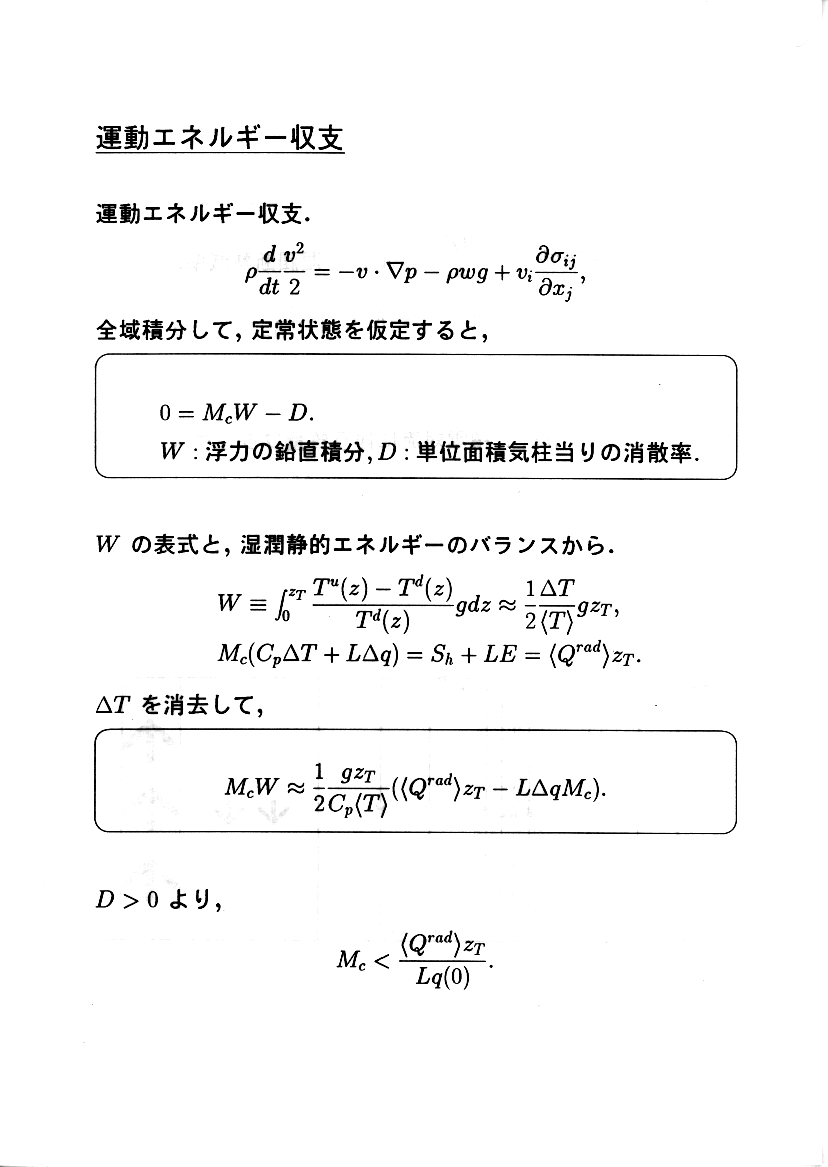 運動エネルギー収支
運動エネルギー収支.
ρ d/dt v²/2 = −v · ∇p − ρwg + vᵢ ∂σᵢⱼ/∂xⱼ,
全域積分して, 定常状態を仮定すると,
0 = M_cW − D.
W : 浮力の鉛直積分, D : 単位面積気柱当りの消散率.
W の表式と, 湿潤静的エネルギーのバランスから.
W ≡ ∫₀^{z_T} (T^u(z) − T^d(z))/T^d(z) gdz ≈ 1/2 ΔT/⟨T⟩ gz_T,
M_c(C_pΔT + LΔq) = S_h + LE = ⟨Q^{rad}⟩z_T.
ΔT を消去して,
M_cW ≈ 1/2 gz_T/C_p⟨T⟩ (⟨Q^{rad}⟩z_T − LΔqM_c).
D > 0 より,
M_c < ⟨Q^{rad}⟩z_T/Lq(0).